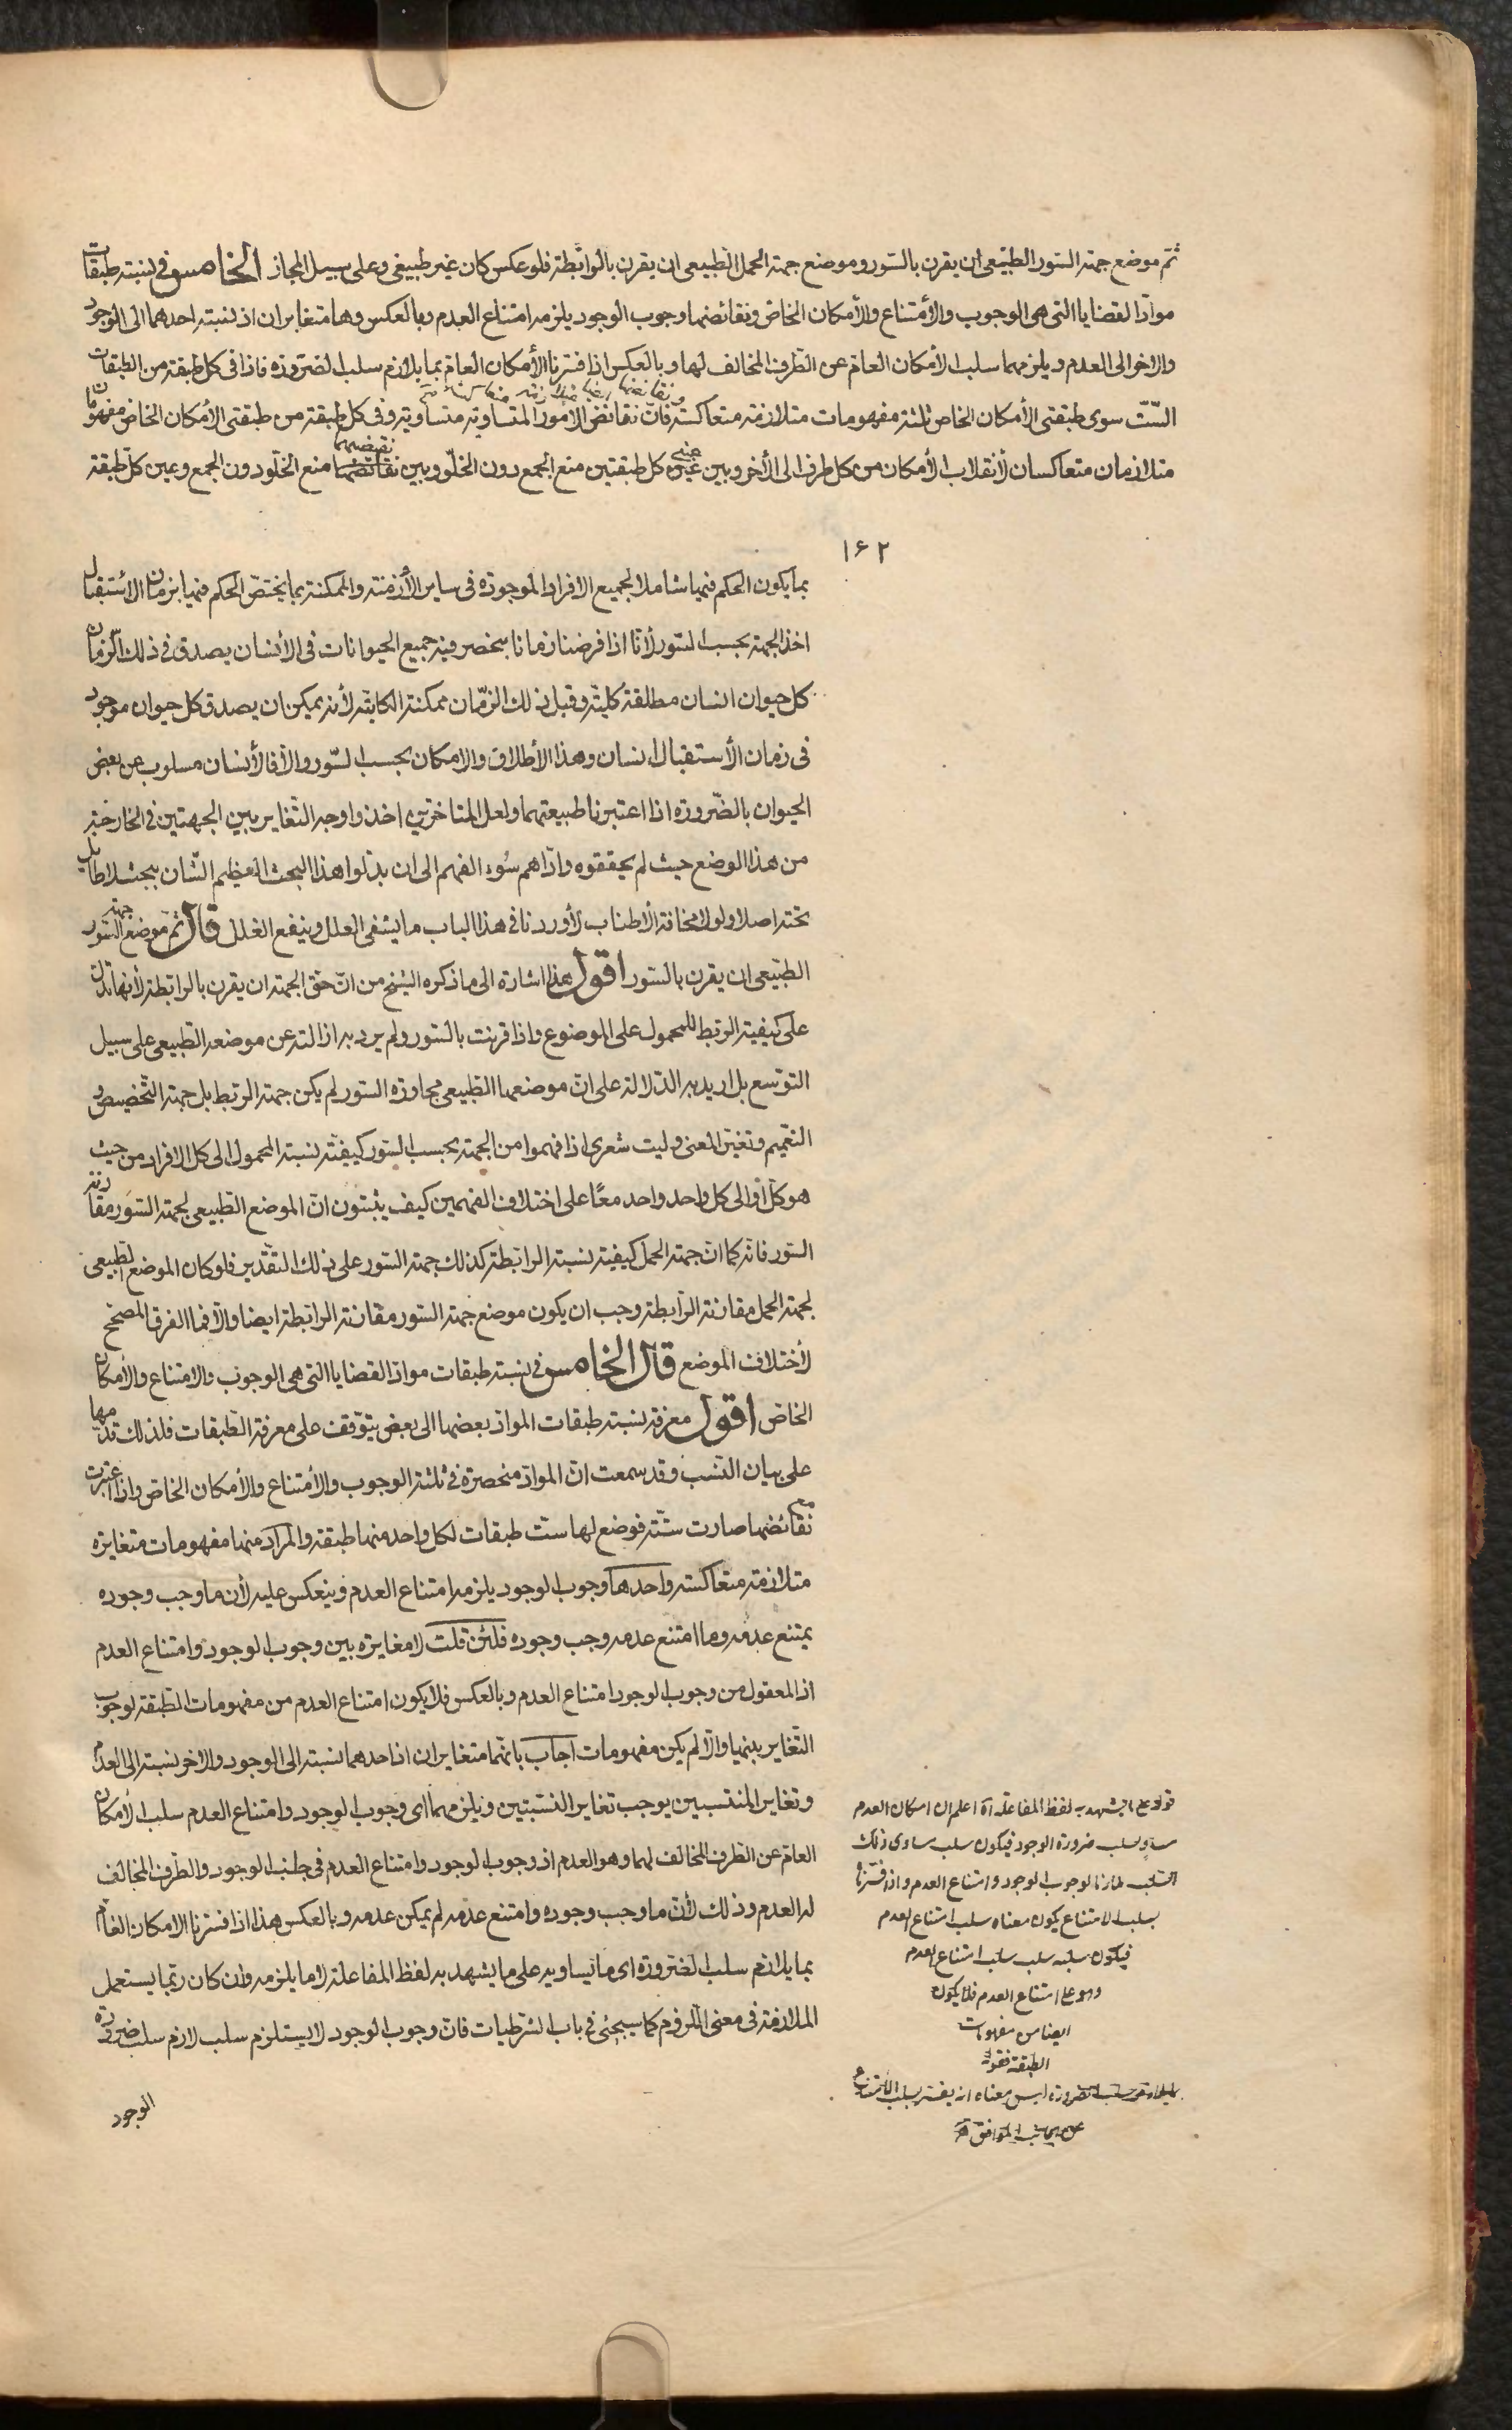 ثم موضع جهة السور الطبيعى ان يقرن بالسور وموضع جهة الحمل الطبيعى ان يقرن بالرابطة فلو عكس كان غير طبيعى وعلى سبيل المجاز الخامس فى نسبة طبقات
مواد القضايا التى هى الوجوب والأمتناع والأمكان الخاص ونقائضها وجوب الوجود يلزمه امتناع العدم وبالعكس وهما متغايران اذ نسبة احدهما الى الوجود
والاخر الى العدم ويلزمهما سلب الأمكان العام عن الطرف المخالف لهما وبالعكس اذا فسرنا الأمكان العام بما يلازم سلب الضرورة فاذا فى كل طبقة من الطبقات
الست سوى طبقتى الأمكان الخاص ثلثة مفهومات متلازمة متعاكسة فان نقائض الامور المتساوية متساوية وفى كل طبقة من طبقتى الأمكان الخاص مفهوما
متلازمان متعاكسان لأنقلاب الأمكان من كل طرف الى الأخر وبين عين كل طبقتين منع الجمع دون الخلو وبين نقيضيهما منع الخلو دون الجمع وعين كل طبقة
١٦٢
بما يكون الحكم فيها شاملا لجميع الافراد الموجودة فى ساير الأزمنة والممكنة بما يختص الحكم فيها بزمان الأستقبال
اخذ الجهة بحسب السور لأنا اذا فرضنا زمانا ينحصر فيه جميع الحيوانات فى الأنسان يصدق فى ذلك الزمان
كل حيوان انسان مطلقة كلية وقبل ذلك الزمان ممكنة الكلية لأنه يمكن ان يصدق كل حيوان موجود
فى زمان الأستقبال انسان وهذا الأطلاق والامكان بحسب السور والا فالأنسان مسلوب عن بعض
الحيوان بالضرورة اذا اعتبرنا طبيعتهما ولعل المتاخرين اخذوا وجه التغاير بين الجهتين فى الخارجية
من هذا الوضع حيث لم يحققوه واداهم سوء الفهم الى ان بدلوا هذا البحث العظيم الشان ببحث لا طايل
تحته اصلا ولولا مخافة الأطناب لأوردنا فى هذا الباب ما يشفى العلل وينفع الغلل قال ثم موضع جهة السور
الطبيعى ان يقرن بالسور اقول هذا اشارة الى ما ذكره الشيخ من ان حق الجهة ان يقرن بالرابطة لأنها تدل
على كيفية الربط للمحمول على الموضوع واذا قرنت بالسور ولم يرد به ازالته عن موضعه الطبيعى على سبيل
التوسع بل اريد به الدلالة على ان موضعها الطبيعى مجاورة السور لم يكن جهة الربط بل جهة التخصيص و
التعميم وتغير المعنى وليت شعرى اذا فهموا من الجهة بحسب السور كيفية نسبة المحمول الى كل الافراد من حيث
هو كل او الى كل واحد واحد معا على اختلاف الفهمين كيف يثبتون ان الموضع الطبيعى لجهة السور مقارنة
السور فانه كما ان جهة الحمل كيفية نسبة الرابطة كذلك جهة السور على ذلك التقدير فلو كان الموضع الطبيعى
لجهة الحمل مقارنة الرابطة وجب ان يكون موضع جهة السور مقارنة الرابطة ايضا والا فما الفرق المصحح
لأختلاف الموضع قال الخامس فى نسبة طبقات مواد القضايا التى هى الوجوب والامتناع والأمكان
الخاص اقول معرفة نسبة طبقات المواد بعضها الى بعض يتوقف على معرفة الطبقات فلذلك قدمها
على بيان النسب وقد سمعت ان المواد منحصرة فى ثلثة الوجوب والأمتناع والأمكان الخاص واذا اعتبرت
مع نقائضها صارت ستة فوضع لها ست طبقات لكل واحد منها طبقة والمراد منها مفهومات متغايرة
متلازمة متعاكسة واحدها وجوب الوجود يلزمه امتناع العدم وينعكس عليه لأن ما وجب وجوده
يمتنع عدمه وما امتنع عدمه وجب وجوده فلئن قلت لا مغايرة بين وجوب الوجود وامتناع العدم
اذ المعقول من وجوب الوجود امتناع العدم وبالعكس فلا يكون امتناع العدم من مفهومات الطبقة لوجوب
التغاير بينها والا لم يكن مفهومات اجاب بانهما متغايران اذ احدهما نسبة الى الوجود والاخر نسبة الى العدم
وتغاير المنتسبين يوجب تغاير النسبتين ويلزمهما اى وجوب الوجود وامتناع العدم سلب الأمكان
العام عن الطرف المخالف لهما وهو العدم اذ وجوب الوجود وامتناع العدم فى جانب الوجود والطرف المخالف
له العدم وذلك لأن ما وجب وجوده وامتنع عدمه لم يمكن عدمه وبالعكس هذا اذا فسرنا الامكان العام
بما يلازم سلب الضرورة اى ما يساويه على ما يشهد به لفظ المفاعلة لا ما يلزمه وان كان ربما يستعمل
الملازمة فى معنى اللزوم كما سيجئ فى باب الشرطيات فان وجوب الوجود لا يستلزم سلب لازم سلب ضرورة
الوجود
قوله على ما يشهد به لفظ المفاعلة آه اعلم ان امكان العدم
مساو لسلب ضرورة الوجود فيكون سلب مساوى ذلك
السلب لازما لوجوب الوجود وامتناع العدم واذا فسرنا
بسلب الامتناع يكون معناه سلب امتناع العدم
فيكون سلبه سلب سلب امتناع العدم
وهو عين امتناع العدم فلا يكون
ايضا من مفهومات
الطبقة فقوله
سلب الضرورة ليس معناه ان يفسر بسلب الامتناع
عن الجانب الموافق